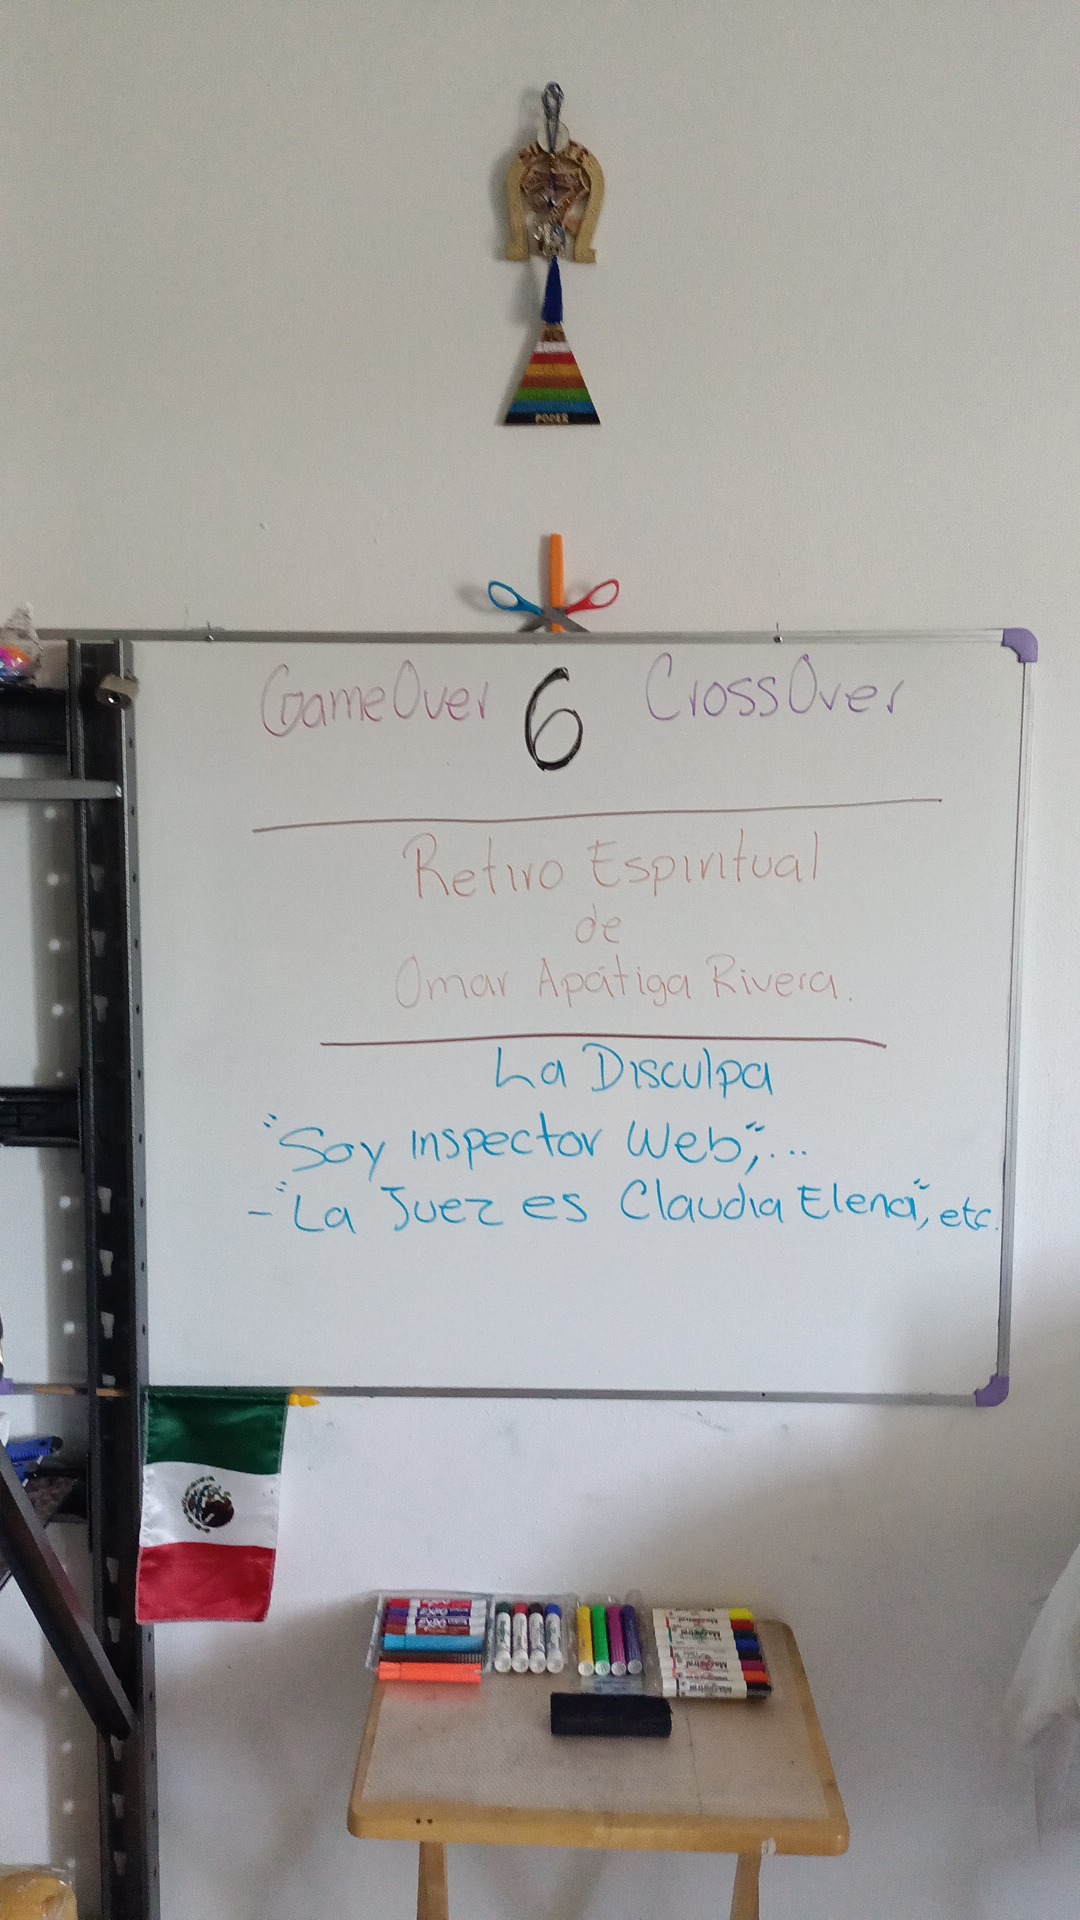 PODER
GameOver 6 CrossOver
Retiro Espiritual
de
Omar Apátiga Rivera.
La Disculpa
"Soy inspector Web",...
- "La Juez es Claudia Elena", etc.